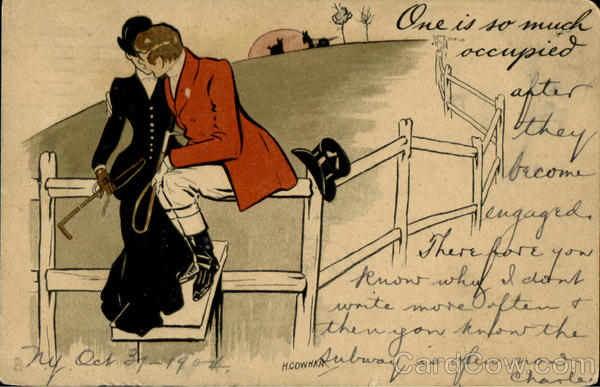 One is so much
occupied
after
they
become
engaged.
Therefore you
know why I dont
write more often &
then you know the
Subway is open now
Charlie
NY Oct 31 - 1904
H. COWHAM
CardCow.com